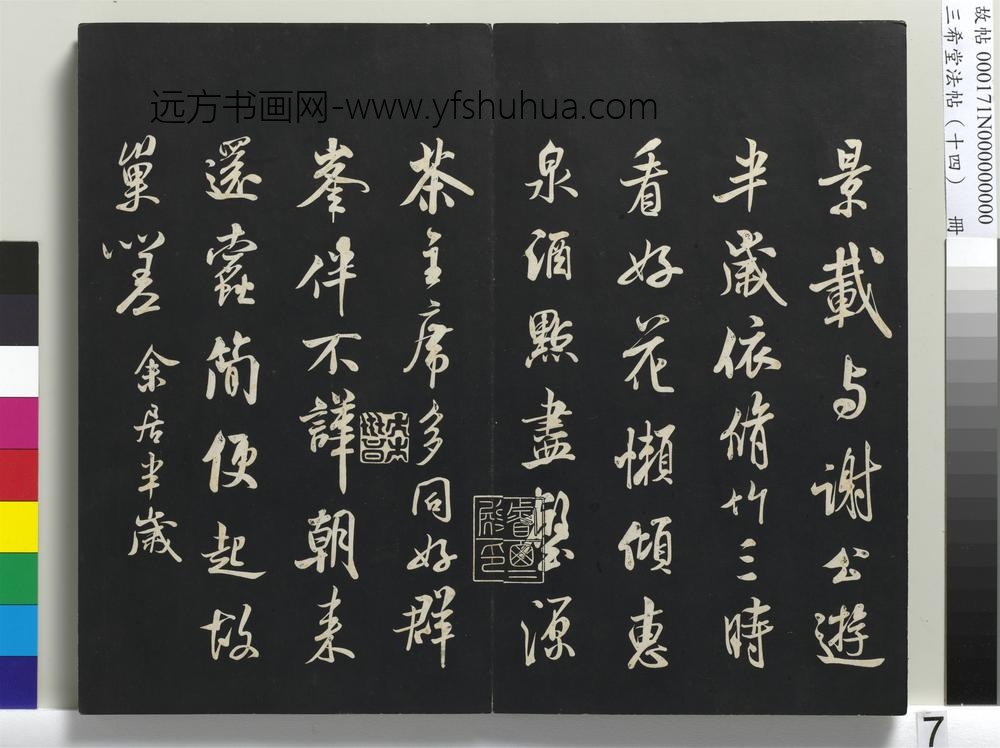 远方书画网-www.yfshuhua.com
景載与謝公遊
半歲依脩竹三時
看好花懶傾惠
泉酒點盡壑源
茶主席多同好群
峯伴不譁朝来
還蠹簡便起故
巢嗟 余居半歲
故帖 000171N000000000
三希堂法帖（十四） 册
7